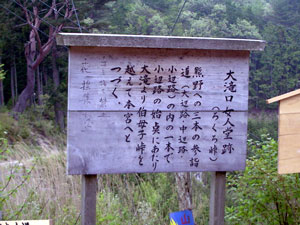 大滝口女人堂跡
（ろくろ峠）
熊野への三本の参詣
道（大辺路 中辺路
小辺路）の内の一本で
小辺路の始点にあたり
大滝より伯母子峠を
越えて本宮へと
つづく。